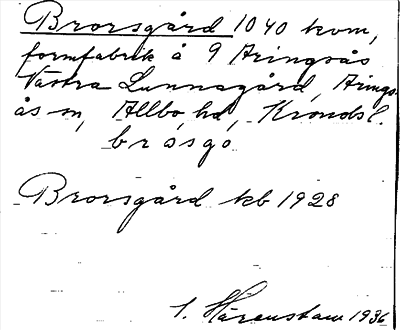 Brorsgård 1040 kvm,
formfabrik å 9 Aringsås
Västra Lunnagård, Arings-
ås sn, Allbo hd, Kronobs l.
brósgo
Brorsgård kb 1928
I. Härenstam 1936